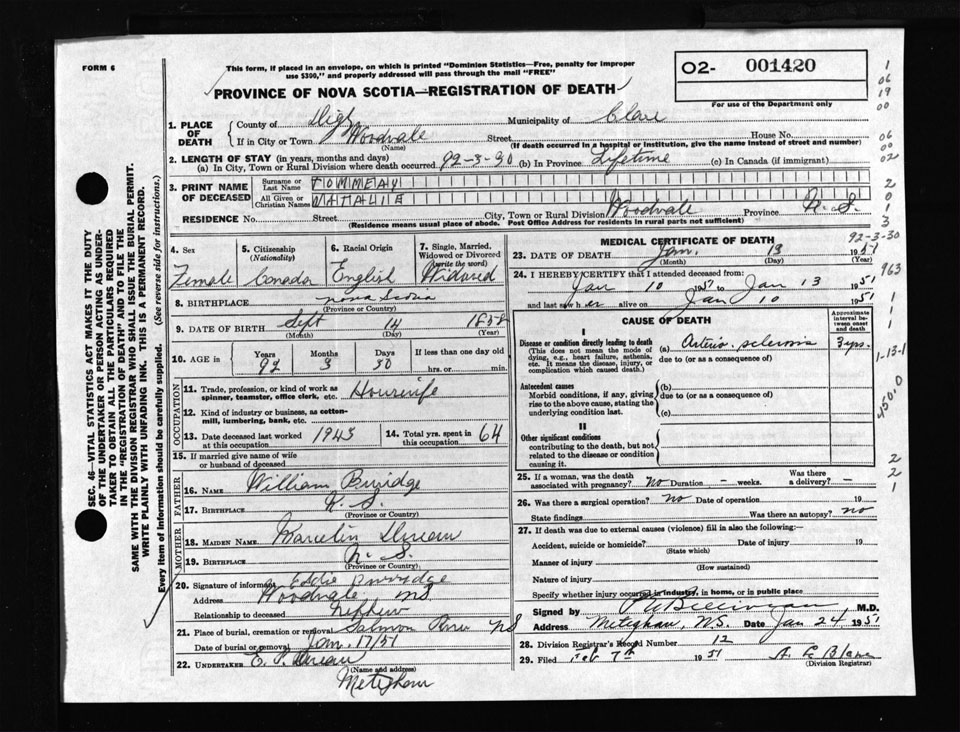 FORM 6
This form, if placed in an envelope, on which is printed "Dominion Statistics—Free, penalty for improper
use $300," and properly addressed will pass through the mail "FREE"
O2- 001420
PROVINCE OF NOVA SCOTIA—REGISTRATION OF DEATH
For use of the Department only
1. PLACE OF DEATH County of Digby Municipality of Clare
If in City or Town Woodvale Street House No.
(Name) (If death occurred in a hospital or institution, give the name instead of street and number)
2. LENGTH OF STAY (in years, months and days)
(a) In City, Town or Rural Division where death occurred 92-3-30 (b) In Province Lifetime (c) In Canada (if immigrant)
3. PRINT NAME OF DECEASED Surname or Last Name
All Given or Christian Names NATALIE
RESIDENCE No. Street City, Town or Rural Division Woodvale Province N. S.
(Residence means usual place of abode. Post Office Address for residents in rural parts not sufficient)
4. Sex Female
5. Citizenship (Nationality) Canada
6. Racial Origin English
7. Single, Married, Widowed or Divorced (write the word) Widowed
8. BIRTHPLACE Nova Scotia
(Province or Country)
9. DATE OF BIRTH Sept 14 1858
(Month) (Day) (Year)
10. AGE in Years Months Days If less than one day old
92 3 30 hrs. or min.
OCCUPATION
11. Trade, profession, or kind of work as spinner, teamster, office clerk, etc. Housewife
12. Kind of industry or business, as cotton-mill, lumbering, bank, etc.
13. Date deceased last worked at this occupation 1943
14. Total yrs. spent in this occupation 64
15. If married give name of wife or husband of deceased
FATHER
16. NAME William
17. BIRTHPLACE N. S.
(Province or Country)
MOTHER
18. MAIDEN NAME
19. BIRTHPLACE N. S.
(Province or Country)
20. Signature of informant Eddie
Address Woodvale NS
Relationship to deceased Nephew
21. Place of burial, cremation or removal Salmon River NS
Date of burial or removal Jan. 17/51
22. UNDERTAKER E. P.
(Name and address)
Meteghan
MEDICAL CERTIFICATE OF DEATH
92-3-30
23. DATE OF DEATH Jan. 13 1951
(Month) (Day) (Year)
24. I HEREBY CERTIFY that I attended deceased from:
Jan 10 1951 to Jan 13 1951
and last saw her alive on Jan 10 1951
CAUSE OF DEATH
Approximate interval between onset and death
I
Disease or condition directly leading to death (a) Arterio-sclerosis 3 yrs.
(This does not mean the mode of dying, e.g., heart failure, asthenia, etc. It means the disease, injury, or complication which caused death.)
due to (or as a consequence of)
Antecedent causes (b)
Morbid conditions, if any, giving rise to the above cause, stating the underlying condition last.
due to (or as a consequence of)
(c)
II
Other significant conditions
contributing to the death, but not related to the disease or condition causing it.
25. If a woman, was the death associated with pregnancy? No Duration - weeks. Was there a delivery? -
26. Was there a surgical operation? no Date of operation 19
State findings Was there an autopsy? no
27. If death was due to external causes (violence) fill in also the following:—
Accident, suicide or homicide? Date of injury 19
(State which)
Manner of injury
(How sustained)
Nature of injury
Specify whether injury occurred in industry, in home, or in public place
Signed by M.D.
Address Meteghan, N.S. Date Jan 24, 1951
28. Division Registrar's Record Number 12
29. Filed Feb 7th 1951
(Division Registrar)
SEC. 46—VITAL STATISTICS ACT MAKES IT THE DUTY
OF THE UNDERTAKER OR PERSON ACTING AS UNDER-
TAKER TO OBTAIN ALL THE PARTICULARS REQUIRED
IN THE "REGISTRATION OF DEATH" AND TO FILE THE
SAME WITH THE DIVISION REGISTRAR WHO SHALL ISSUE THE BURIAL PERMIT.
WRITE PLAINLY WITH UNFADING INK. THIS IS A PERMANENT RECORD.
Every item of information should be carefully supplied. (See reverse side for instructions.)
1
06
19
00
06
00
02
2
0
1
3
963
1
1
1
1-13-1
4500
2
2
1